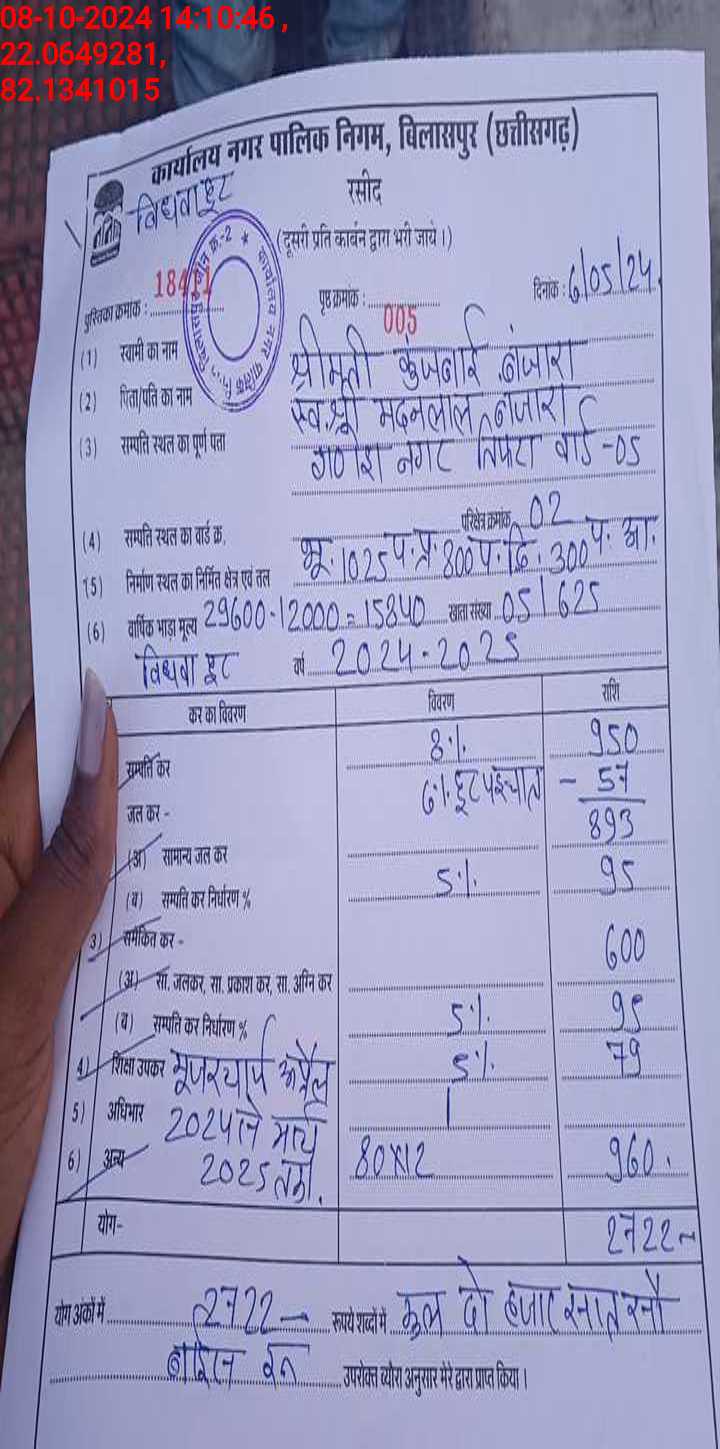 08-10-2024 14:10:46 ,
22.0649281,
82.1341015
कार्यालय नगर पालिक निगम, बिलासपुर (छत्तीसगढ़)
विधवा छूट
रसीद
(दूसरी प्रति कार्बन द्वारा भरी जाये।)
पुस्तिका क्रमांक : 18411 पृष्ठ क्रमांक : 005 दिनांक : 6/05/24
(1) स्वामी का नाम श्रीमती कुंजबाई बंजारा
(2) पिता/पति का नाम स्व. श्री मदनलाल बंजारा
(3) सम्पत्ति स्थल का पूर्ण पता गणेश नगर तिफरा वार्ड -05
(4) सम्पत्ति स्थल का वार्ड क्र. परिक्षेत्र क्रमांक 02
(5) निर्माण स्थल का निर्मित क्षेत्र एवं तल भू. 1025 प. प्र. 800 प. द्वि. 300 प. आ.
(6) वार्षिक भाड़ा मूल्य 29600-12000=15840 खाता संख्या 05/625
विधवा छूट वर्ष 2024-2025
कर का विवरण विवरण राशि
सम्पत्ति कर 8% 950
6% छूट पश्चात - 57
जल कर - 893
(अ) सामान्य जल कर
(ब) सम्पत्ति कर निर्धारण % 5% 95
3) समेकित कर - 600
(अ) सा. जलकर, सा. प्रकाश कर, सा. अग्नि कर
(ब) सम्पत्ति कर निर्धारण % 5% 95
4) शिक्षा उपकर 5% 79
यूजरचार्ज अप्रैल
5) अधिभार 2024 से मार्च
6) अन्य 2025 तक. 80x12 960.
योग- 2722
योग अंकों में 2722 रूपये शब्दों में कुल दो हजार सात सौ
बाईस रू उपरोक्त ब्यौरा अनुसार मेरे द्वारा प्राप्त किया।